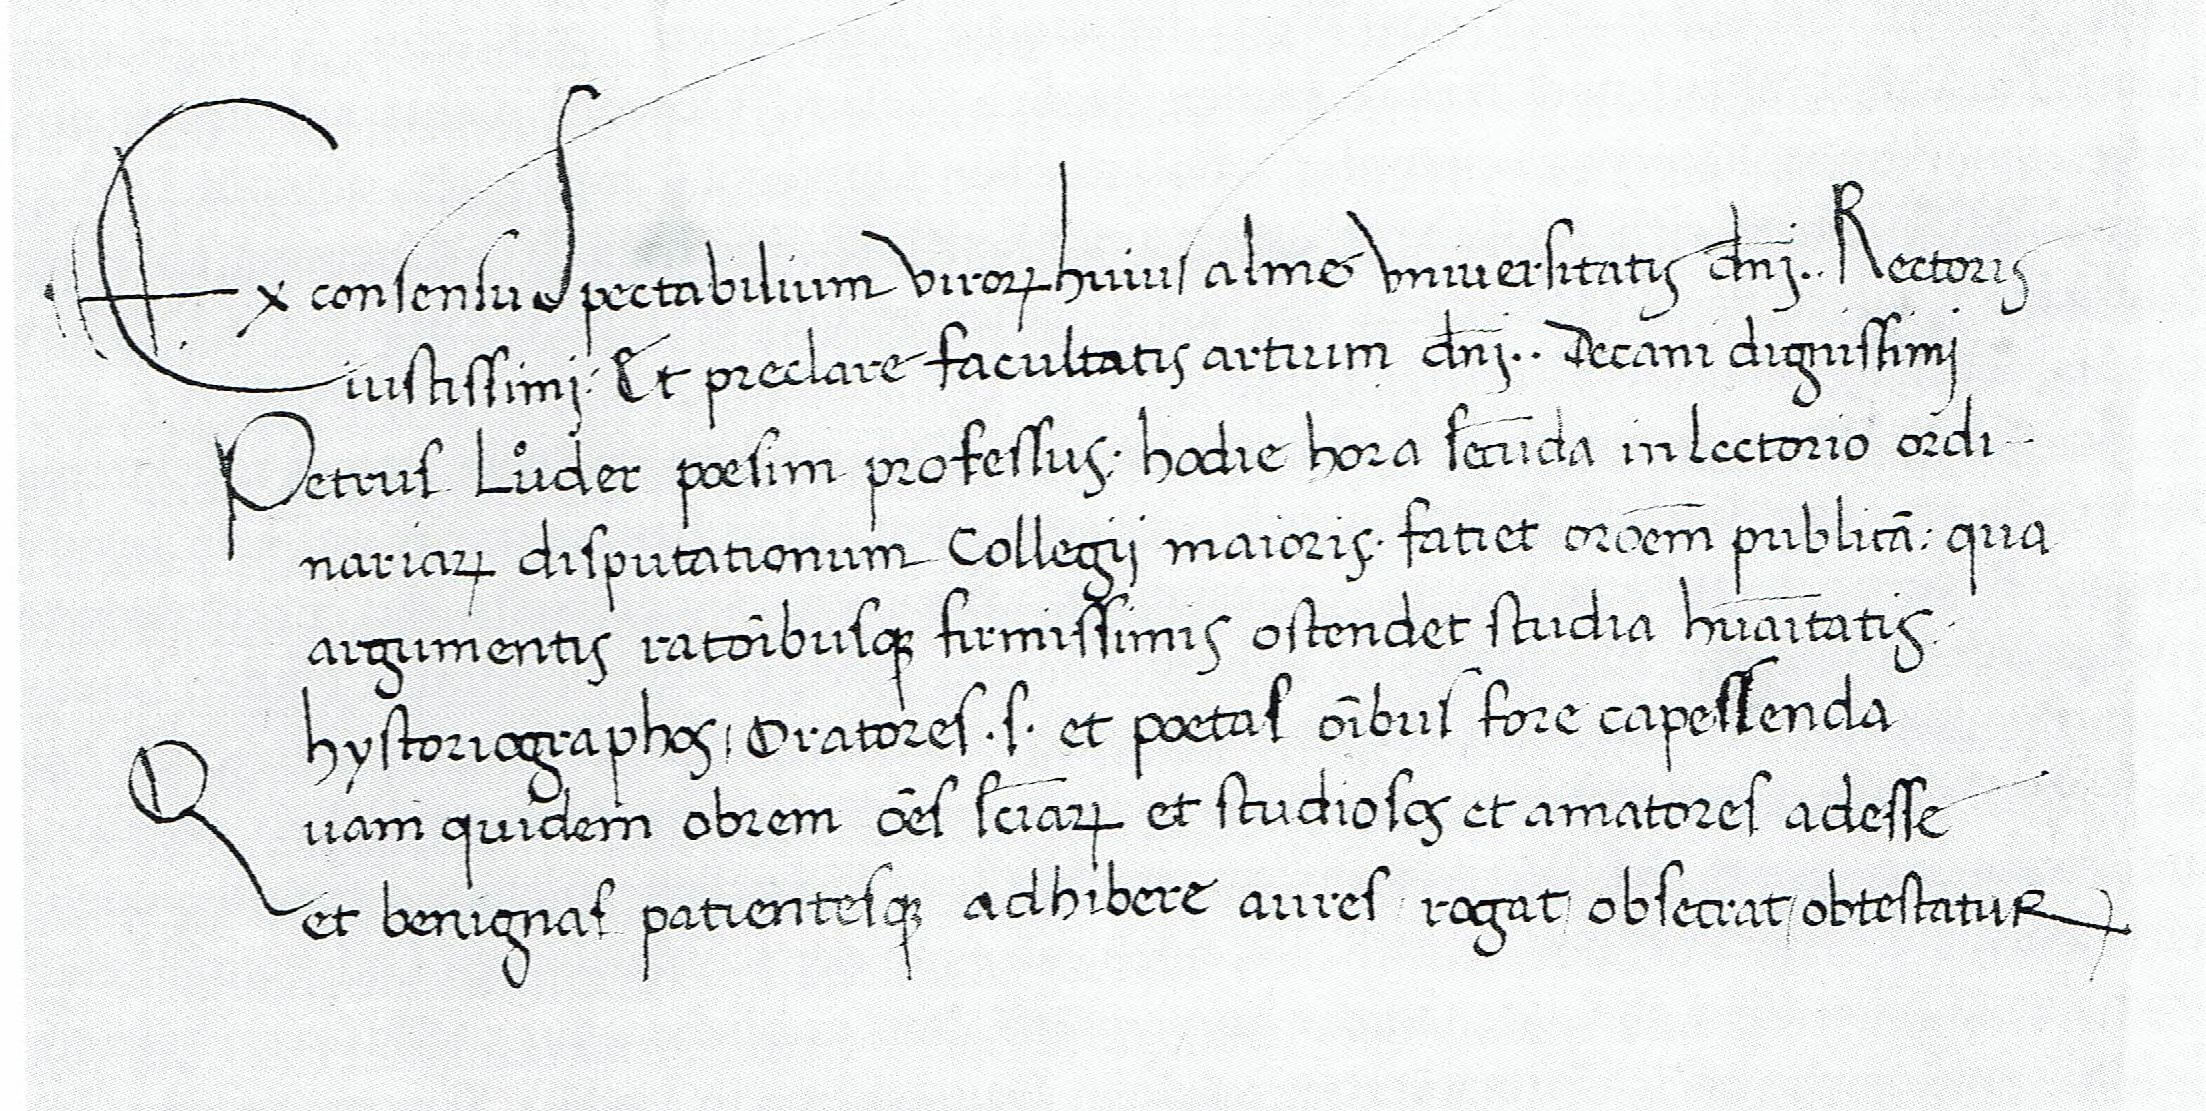 Ex consensu Spectabilium virorꝝ huius alme vniuersitatis dn̄j .. Rectoris
iustissimj: Et preclare facultatis artium dn̄j .. Decani dignissimj
Petrus Lůder poesim professus· hodie hora sec̄uda in lectorio ordi-
nariaꝝ disputationum Collegij maioris· fatiet orōem publicā: qua
argumentis ratōibusqꝫ firmissimis ostendet studia hūaītatis·
hystoriographos / Oratores .s. et poetas oībus fore capessenda
Quam quidem obrem oēs scīaꝝ et studiosos et amatores adesse
et benignas patientesqꝫ adhibere aures / rogat / obsecrat / obtestatur